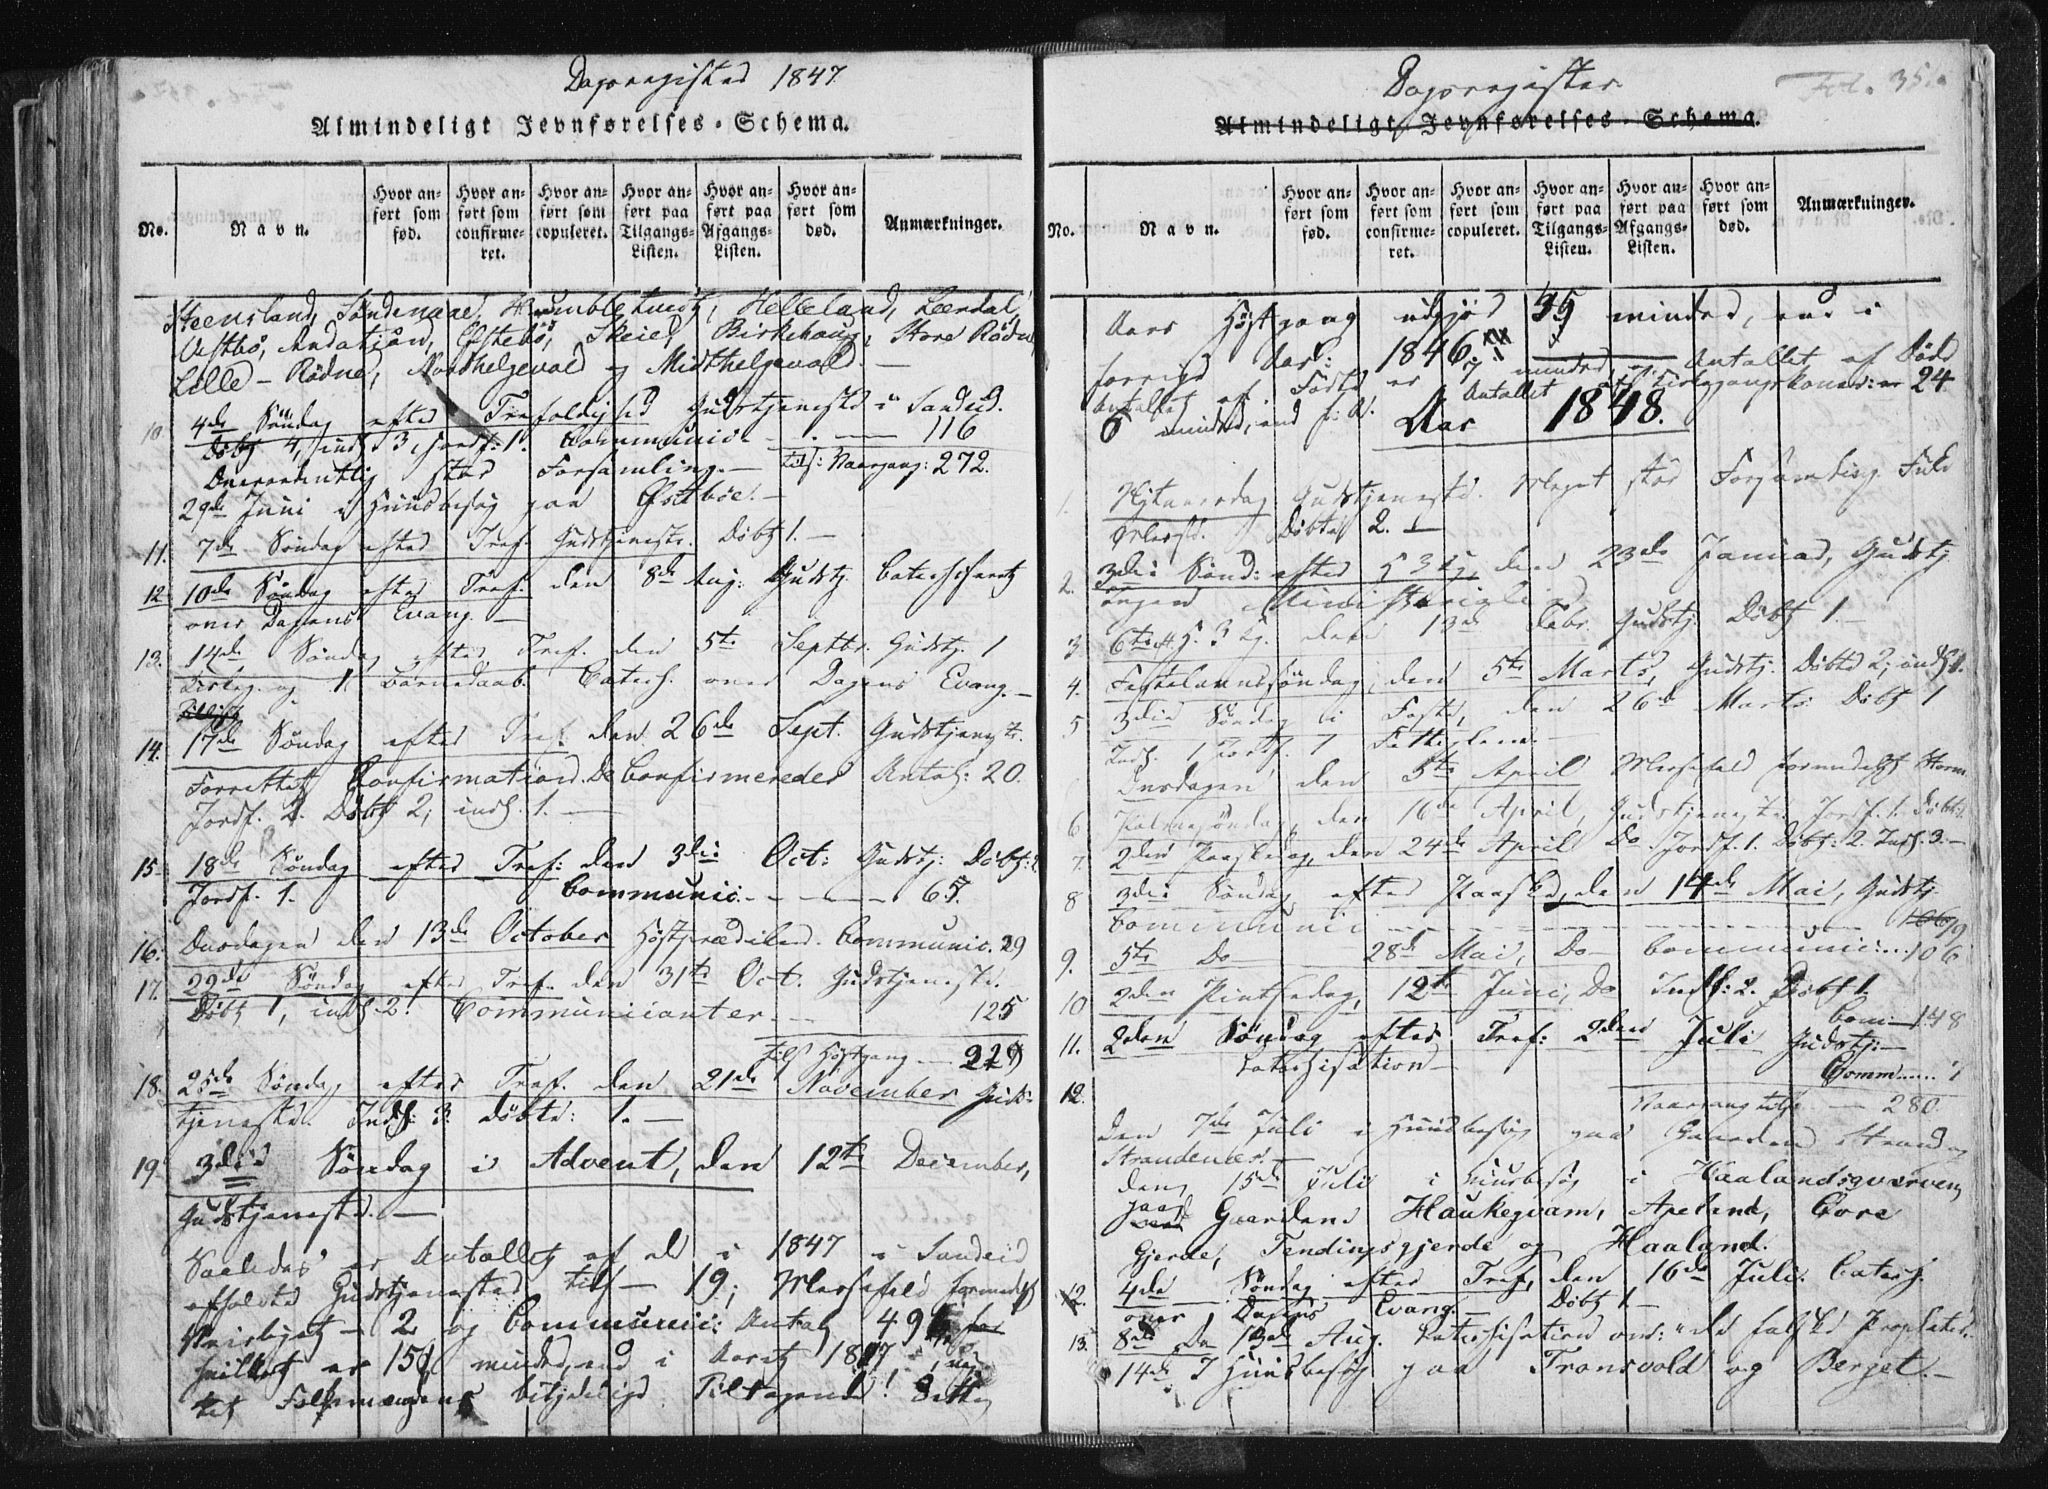 Dagsregister 1847
Almindeligt Jevnførelses-Schema.
No.
Navn.
Hvor anført som fød.
Hvor anført som confirmeret.
Hvor anført som copuleret.
Hvor anført paa Tilgangs-Listen.
Hvor anført paa Afgangs-Listen.
Hvor anført som død.
Anmærkninger.
Steensland, Søndenaae, Humbletvedt, Helleland, Leerdal,
Vestbø, Østebø, Skeie, Birkehaug, Store Rødne
Lille-Rødne, Nordhelgevold og Midthelgevold.
10. 4de Søndag efter Trefoldighed Gudstjeneste i Sandeid.
Døbt 4, indl. 3, jordf. 1. Communic. 116
Overordentlig stor Forsamling. Vaargang: 272.
29de Juni i Huusbesøg paa Østbøe.
11. 7de Søndag efter Tref. Gudstjeneste. Døbt 1.
12 10de Søndag efter Tref. den 8de Aug. Gudstj. Catechiseret
over Dagens Evang.
13. 14de Søndag efter Tref. den 5te Septbr. Gudstj. 1
og 1 Barnedaab. Catech. over Dagens Evang.
14. 17de Søndag efter Tref. den 26de Sept. Gudstjeneste.
Forrettet Confirmation. De Confirmeredes Antal: 20.
Jordf. 2. Døbt 2, indl. 1.
15 18de Søndag efter Tref: den 3die Oct: Gudstj: Døbt: 2
Jordf. 1. Communic. 65.
16. Onsdagen den 13de October Høstprædiken. Communic. 29
17. 22de Søndag efter Tref. den 31te Oct. Gudstjeneste.
Døbt 1, indl. 2. Communicanter. 125
Høstgang 219
18. 25de Søndag efter Tref. den 21de November Guds-
tjeneste. Indl: 3. Døbte: 1.
19. 3die Søndag i Advent, den 12te December,
Gudstjeneste.
Saaledes er Antallet af de i 1847 i Sandeid
afholdte Gudstjenester 19; Messefald formedelst
2 og Communic: Antal 491
hvilket er 15 mindre, end i Aaret
Folkemængdens betydelige Tiltagende! Dette
Dagsregister
Fol. 35
Almindeligt Jevnførelses-Schema.
No.
Navn.
Hvor anført som fød.
Hvor anført som confirmeret.
Hvor anført som copuleret.
Hvor anført paa Tilgangs-Listen.
Hvor anført paa Afgangs-Listen.
Hvor anført som død.
Anmærkninger.
Aars Høstgang udgjør 35 mindre, end i
forrige Aar: 1846. Antallet af Døde
Antallet af Fødte er 7 mindre, Antallet er 24
6 mindre, end f. A. Aar 1848.
1. Nytaarsdag Gudstjeneste. Meget stor Forsamling.
Døbte 2.
2. 3die Sønd: efter H3Kg, den 23de Januar, Gudstj.
Ingen Ministerialia
3 6te H. 3 Kg. den 13de Febr. Gudstj. Døbt 1.
4. Fastelavnssøndag, den 5te Marts, Gudstj: Døbte 2, indl. 1.
5 3die Søndag i Faste, den 26de Marts Døbt 1
Indl. 1 Jordf. 1
Onsdagen den 5te April Messefald formedelst Storm
6 Palmesøndag, den 16de April, Gudstjeneste Jordf. 1. Døbt 1.
7. 2den Paaskedag, den 24de April Do. Jordf. 1. Døbt: 2. Indl. 3.
8 3die Søndag efter Paaske, den 14de Mai, Gudstj.
Communic 19
9. 5te Do 28de Mai, Do Communic: 106
10 2den Pintsedag, 12te Juni, Do Indl: 2. Døbt 1.
Com: 148
11. 2den Søndag efter Tref: 2den Juli Gudstj:
Catechisation Comm. 7
12. Vaargang 280.
Den 7de Juli i Huusbesøg paa Gaarden Strand og
Strandenes.
Den 15de Juli i Huusbesøg i Haalandsgverven
paa Gaardene Haukegvam, Apeland, Øvre
Gjerde, Tendingsgjerde og Haaland.
12. 4de Søndag efter Tref, den 16de Juli. Catech.
over Dagens Evang. Døbt 1.
13. 8de Do 13de Aug. Catechisation over: "de falske Propheter.
14de I Huusbesøg paa Tronsvold og Berget.